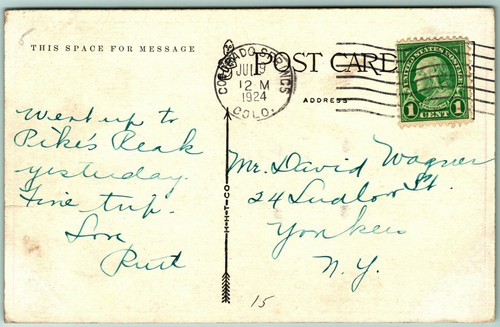 THIS SPACE FOR MESSAGE
POST CARD
ADDRESS
COLORADO SPRINGS
JUL 9
12 M
1924
COLO.
UNITED STATES POSTAGE
1 CENT 1
Went up to
Pike's Peak
yesterday.
Fine trip.
Love
Ruth
Mr. David Wagner
24 Ludlow St.
Yonkers
N.Y.
C.T.
15